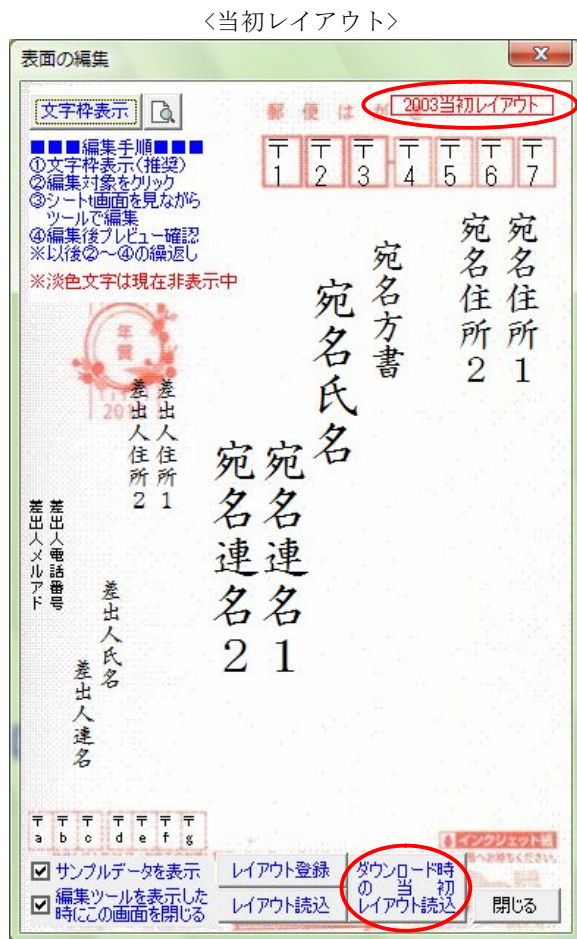 <当初レイアウト>
表面の編集
文字枠表示
郵便はがき
2003当初レイアウト
■■■編集手順■■■
①文字枠表示(推奨)
②編集対象をクリック
③シートt画面を見ながら
ツールで編集
④編集後プレビュー確認
※以後②～④の繰返し
※淡色文字は現在非表示中
〒1 〒2 〒3 〒4 〒5 〒6 〒7
宛名住所1
宛名住所2
宛名方書
宛名氏名
宛名連名1
宛名連名2
年賀
差出人住所1
差出人住所2
差出人電話番号
差出人メルアド
差出人氏名
差出人連名
〒a 〒b 〒c 〒d 〒e 〒f 〒g
インクジェット紙
サンプルデータを表示
編集ツールを表示した
時にこの画面を閉じる
レイアウト登録
レイアウト読込
ダウンロード時
の当初
レイアウト読込
閉じる